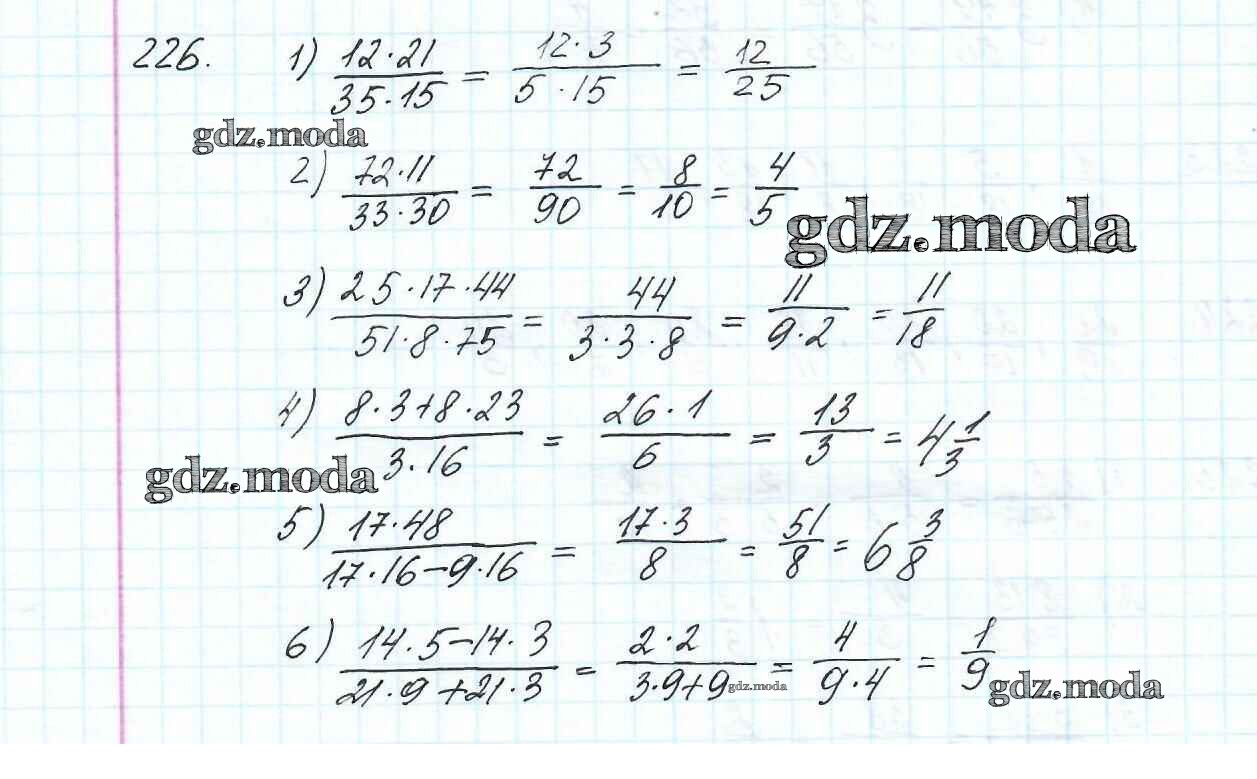 226. 1) 12·21/35·15 = 12·3/5·15 = 12/25
gdz.moda
2) 72·11/33·30 = 72/90 = 8/10 = 4/5
gdz.moda
3) 25·17·44/51·8·75 = 44/3·3·8 = 11/9·2 = 11/18
4) 8·3+8·23/3·16 = 26·1/6 = 13/3 = 4 1/3
gdz.moda
5) 17·48/17·16-9·16 = 17·3/8 = 51/8 = 6 3/8
6) 14·5-14·3/21·9+21·3 = 2·2/3·9+9 = 4/9·4 = 1/9
gdz.moda
gdz.moda